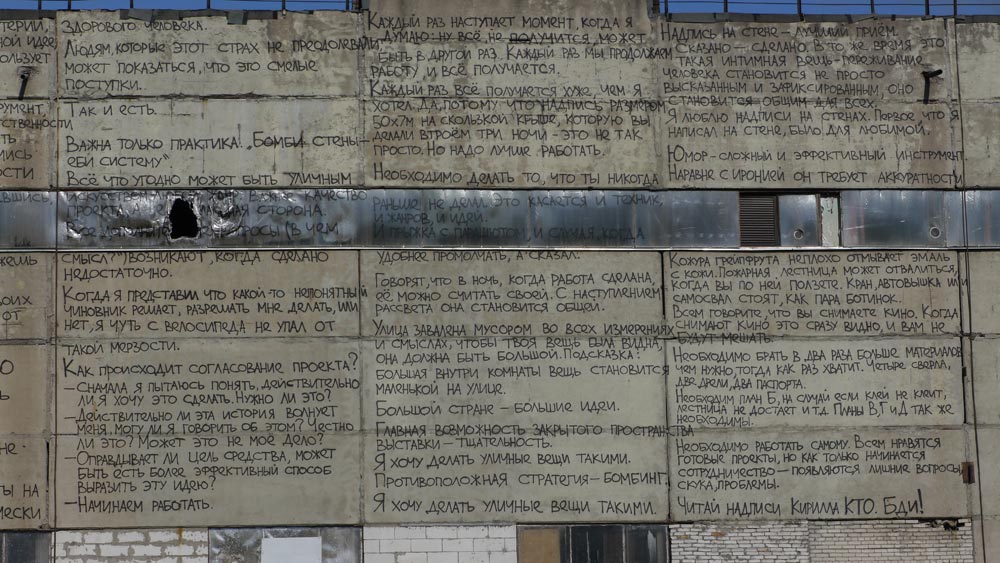 терии,
ной идее
ользует
румент,
тственности
мись
ости
авшись,
жешь
воих
от
О
ь
не.
ты на
чески
здорового человека.
Людям, которые этот страх не преодолевали,
может показаться, что это смелые
поступки.
Так и есть.
Важна только практика! „Бомби стены–
еби систему“
Всё что угодно может быть уличным
искусством, важно качество
проекта сторона.
Все вопросы (в чем
смысл?") возникают, когда сделано
недостаточно.
Когда я представил что какой-то непонятный
чиновник решает, разрешать мне делать, или
нет, я чуть с велосипеда не упал от
такой мерзости.
Как происходит согласование проекта?
– Сначала я пытаюсь понять, действительно
ли я хочу это сделать. Нужно ли это?
– Действительно ли эта история волнует
меня. Могу ли я говорить об этом? Честно
ли это? Может это не моё дело?
– Оправдывает ли цель средства, может
быть есть более эффективный способ
выразить эту идею?
– Начинаем работать.
Каждый раз наступает момент, когда я
думаю – ну всё, не получится, может
быть в другой раз. Каждый раз мы продолжаем
работу, и всё получается.
Каждый раз всё получается хуже, чем я
хотел. Да, потому что надпись размером
50х7м на скользкой крыше, которую вы
делали втроём три ночи – это не так
просто. Но надо лучше работать.
Необходимо делать то, что ты никогда
раньше не делал. Это касается и техник,
и жанров, и идеи.
И прыжка с парашютом, и случая, когда
удобнее промолчать, а сказал.
Говорят, что в ночь, когда работа сделана,
её можно считать своей. С наступлением
рассвета она становится общей.
Улица завалена мусором во всех измерениях
и смыслах, чтобы твоя вещь была видна,
она должна быть большой. Подсказка:
большая внутри комнаты вещь становится
маленькой на улице.
Большой стране – большие идеи.
Главная возможность закрытого пространства
выставки – тщательность.
Я хочу делать уличные вещи такими.
Противоположная стратегия – бомбинг.
Я хочу делать уличные вещи такими.
Надпись на стене – лучший приём.
Сказано – сделано. В то же время это
такая интимная вещь – переживание
человека становится не просто
высказанным и зафиксированным, оно
становится общим для всех.
Я люблю надписи на стенах. Первое что я
написал на стене, было для любимой.
Юмор – сложный и эффективный инструмент.
Наравне с иронией он требует аккуратности
Кожура грейпфрута неплохо отмывает эмаль
с кожи. Пожарная лестница может отвалиться,
когда вы по ней ползете. Кран, автовышка или
самосвал стоят, как пара ботинок.
Всем говорите, что вы снимаете кино. Когда
снимают кино это сразу видно, и вам не
будут мешать.
Необходимо брать в два раза больше материалов
чем нужно, тогда как раз хватит. Четыре сверла,
две дрели, два паспорта.
Необходим план Б, на случай если клей не клеит,
лестница не достает и т.д. Планы В, Г и Д так же
необходимы.
Необходимо работать самому. Всем нравятся
готовые проекты, но как только начинается
сотрудничество – появляются лишние вопросы,
скука, проблемы.
Читай надписи Кирилла КТО. Бди!